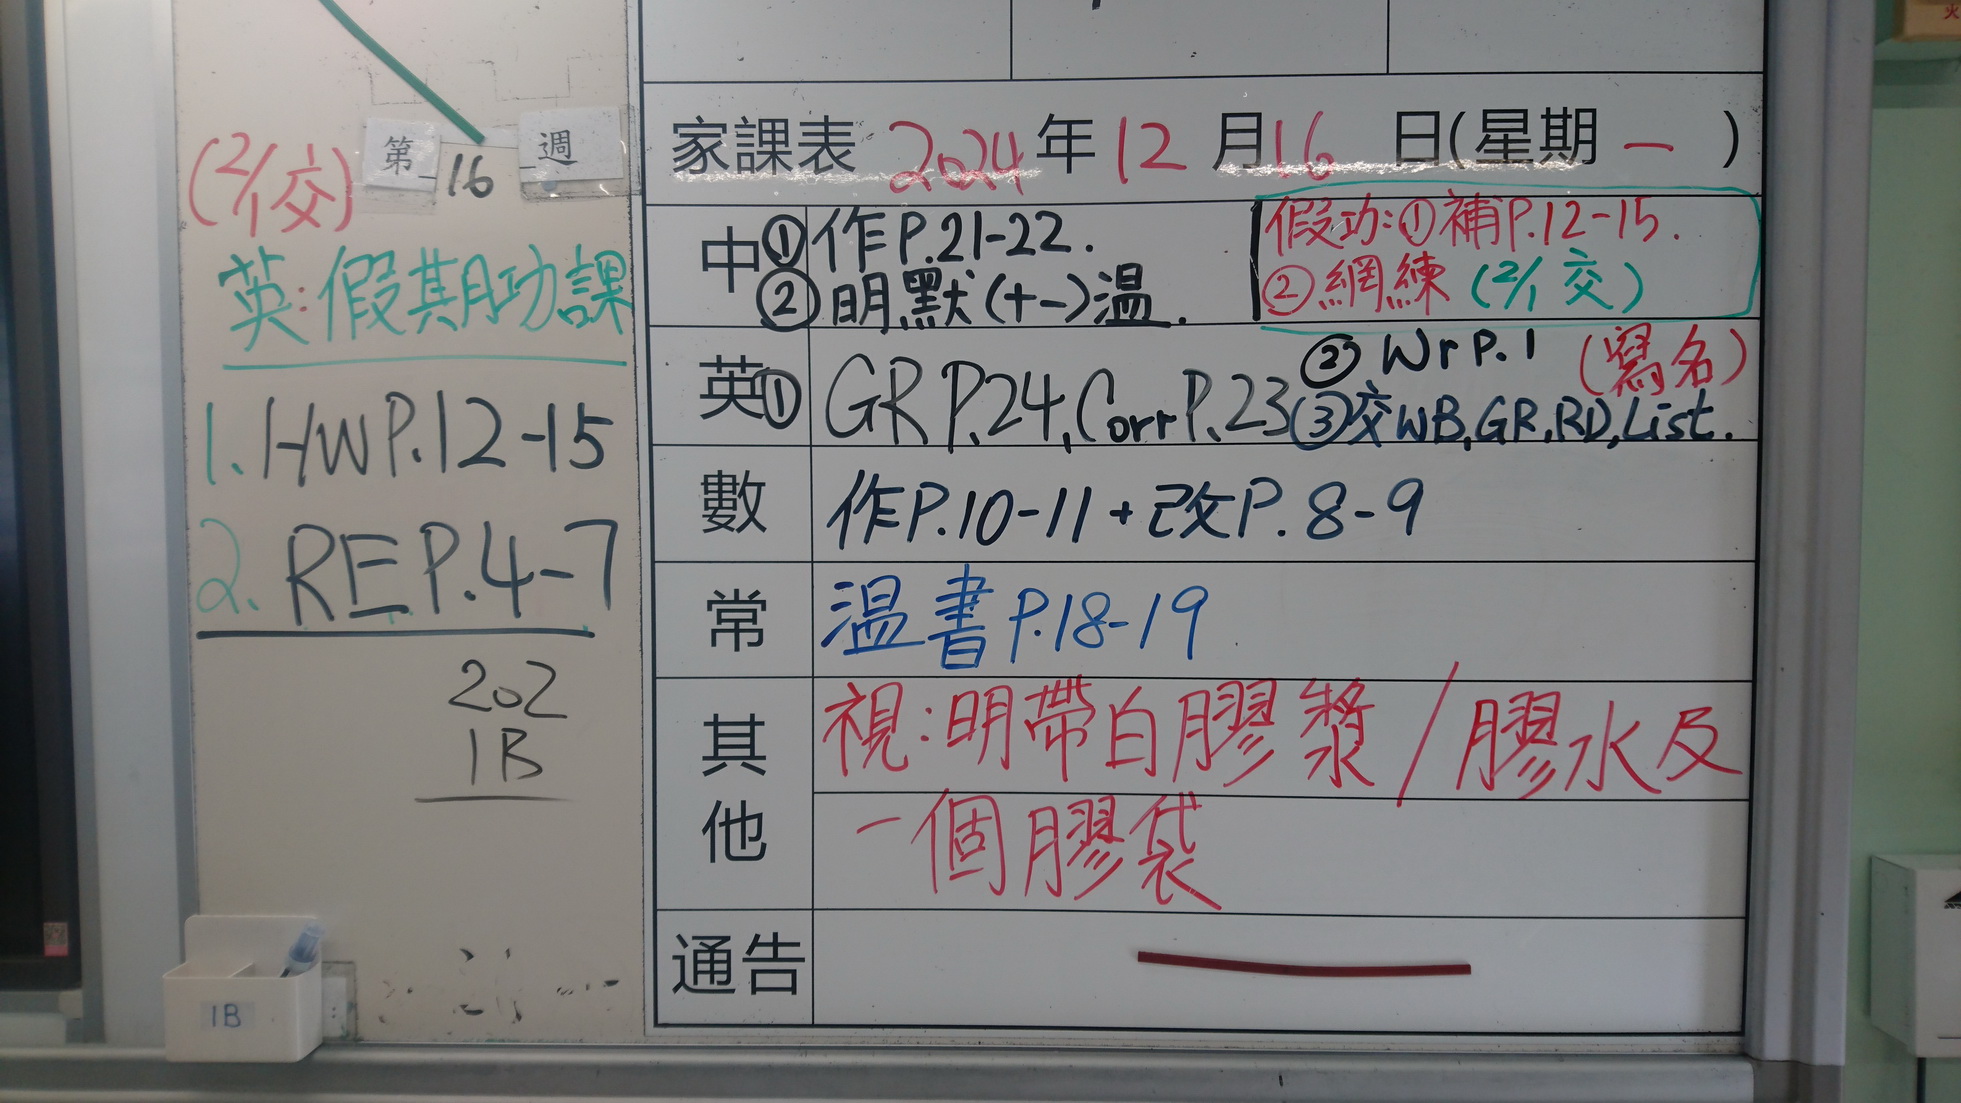 (2/1交)
第 16 週
英:假期功課
1. HW P.12-15
2. RE P.4-7
202
1B
1B
家課表 2024 年 12 月 16 日(星期 一 )
中 ①作P.21-22.
②明默(十一)温.
假功:①補P.12-15.
②網練(2/1交)
英 ①GR P.24, Corr P.23
② Wr P.1 (寫名)
③交WB,GR,RD,List.
數 作P.10-11+改P.8-9
常 温書P.18-19
其他 視:明帶白膠漿/膠水及
一個膠袋
通告